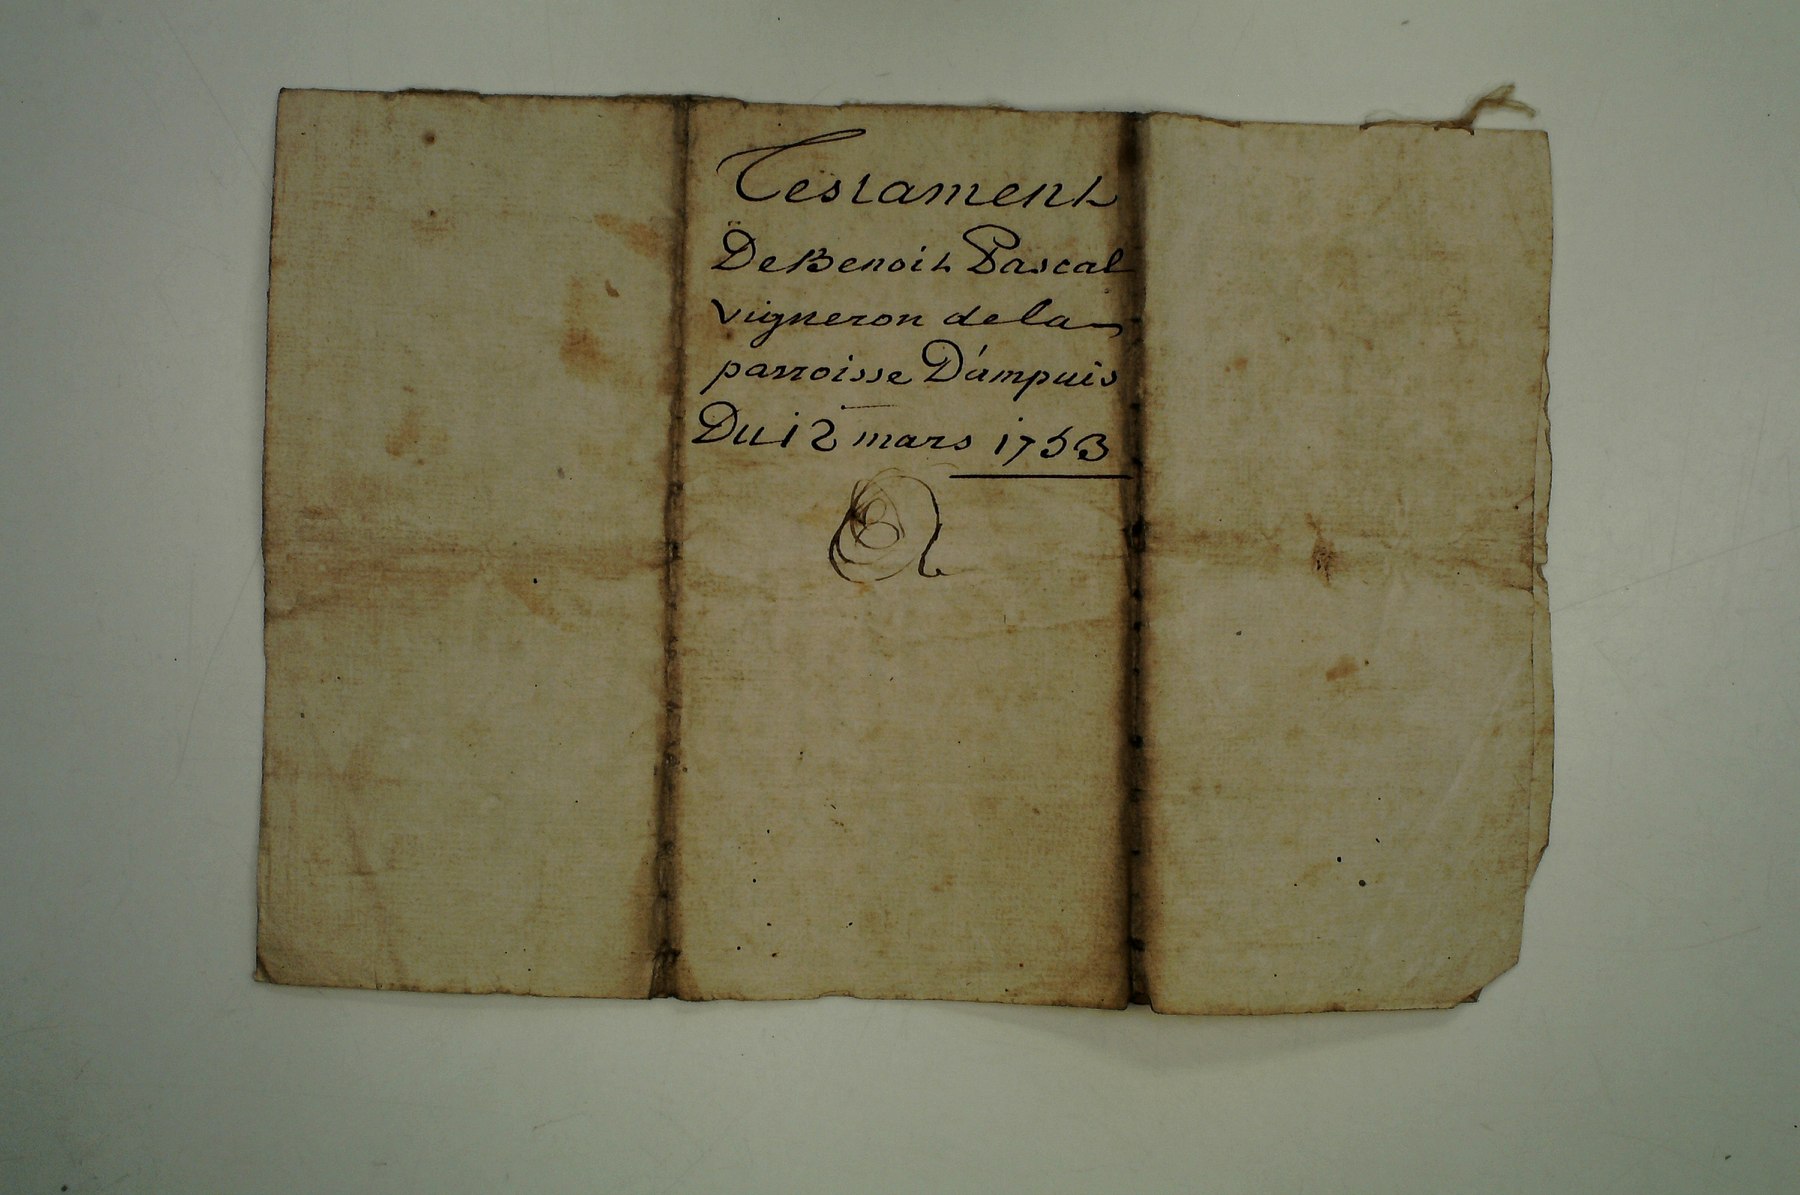 Testament
De Benoit Pascal
vigneron de la
parroisse D'ampuis
Du 12 mars 1753